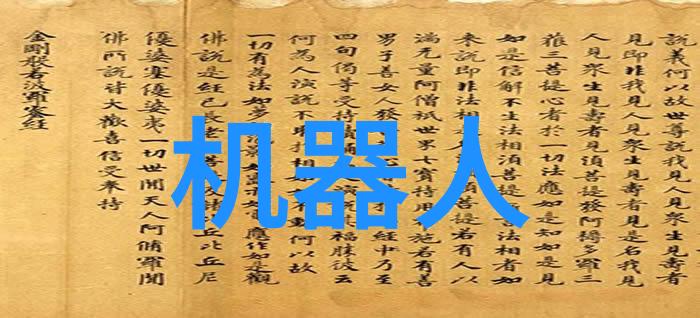 說義何以故世尊說我見人見眾生見壽者
見即非我見人見眾生見壽者見是名我見
人見眾生見壽者見須菩提發阿耨多羅三
藐三菩提心者於一切法應如是知如是見
如是信解不生法相須菩提 法相者如
來說即非法相是 相須菩提若有人以
滿无量阿僧祇世 七寶持用 施若有善
男子善女人發 經 乃至
四句偈等受持 演 福勝彼云
何為人演說不取 相 動何以故
一切有為法如 如 應作如是觀
佛說是經已長老 菩 諸 丘比丘尼
優婆塞優婆夷一切世間天人阿脩羅聞
佛所說皆大歡喜信受奉持
金剛般若波羅蜜經
机器人